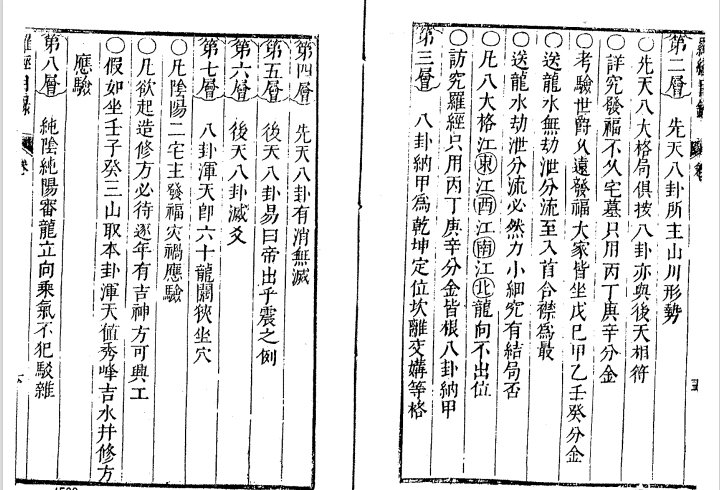 第二層　先天八卦所主山川形勢
○先天八大格局俱按八卦亦與後天相符
○詳究發福不从宅墓只用丙丁庚辛分金
○考驗世爵久遠發福大家皆坐戊巳甲乙壬癸分金
○送龍水無劫泄分流至入首合襟為最
○送龍水劫泄分流必然力小細究有結局否
○凡八大格江東江西江南江北龍向不出位
○訪究羅經只用丙丁庚辛分金皆根八卦納甲
第三層　八卦納甲為乾坤定位坎離交媾等格
第四層　先天八卦有消無滅
第五層　後天八卦易曰帝出乎震之例
第六層　後天八卦滅爻
第七層　八卦渾天卽六十龍闊狹坐穴
○凡陰陽二宅主發福灾禍應驗
○凡欲起造修方必待逐年有吉神方可興工
○假如坐壬子癸三山取本卦渾天値秀峰吉水并修方
應驗
第八層　純陰純陽審龍立向乘氣不犯駁雜
羅經目錄